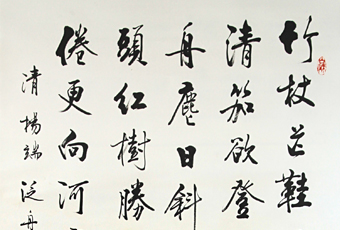 竹杖芒鞋
清箬欲登
舟塵日斜
頭紅樹勝
倦更向河
清楊端泛舟